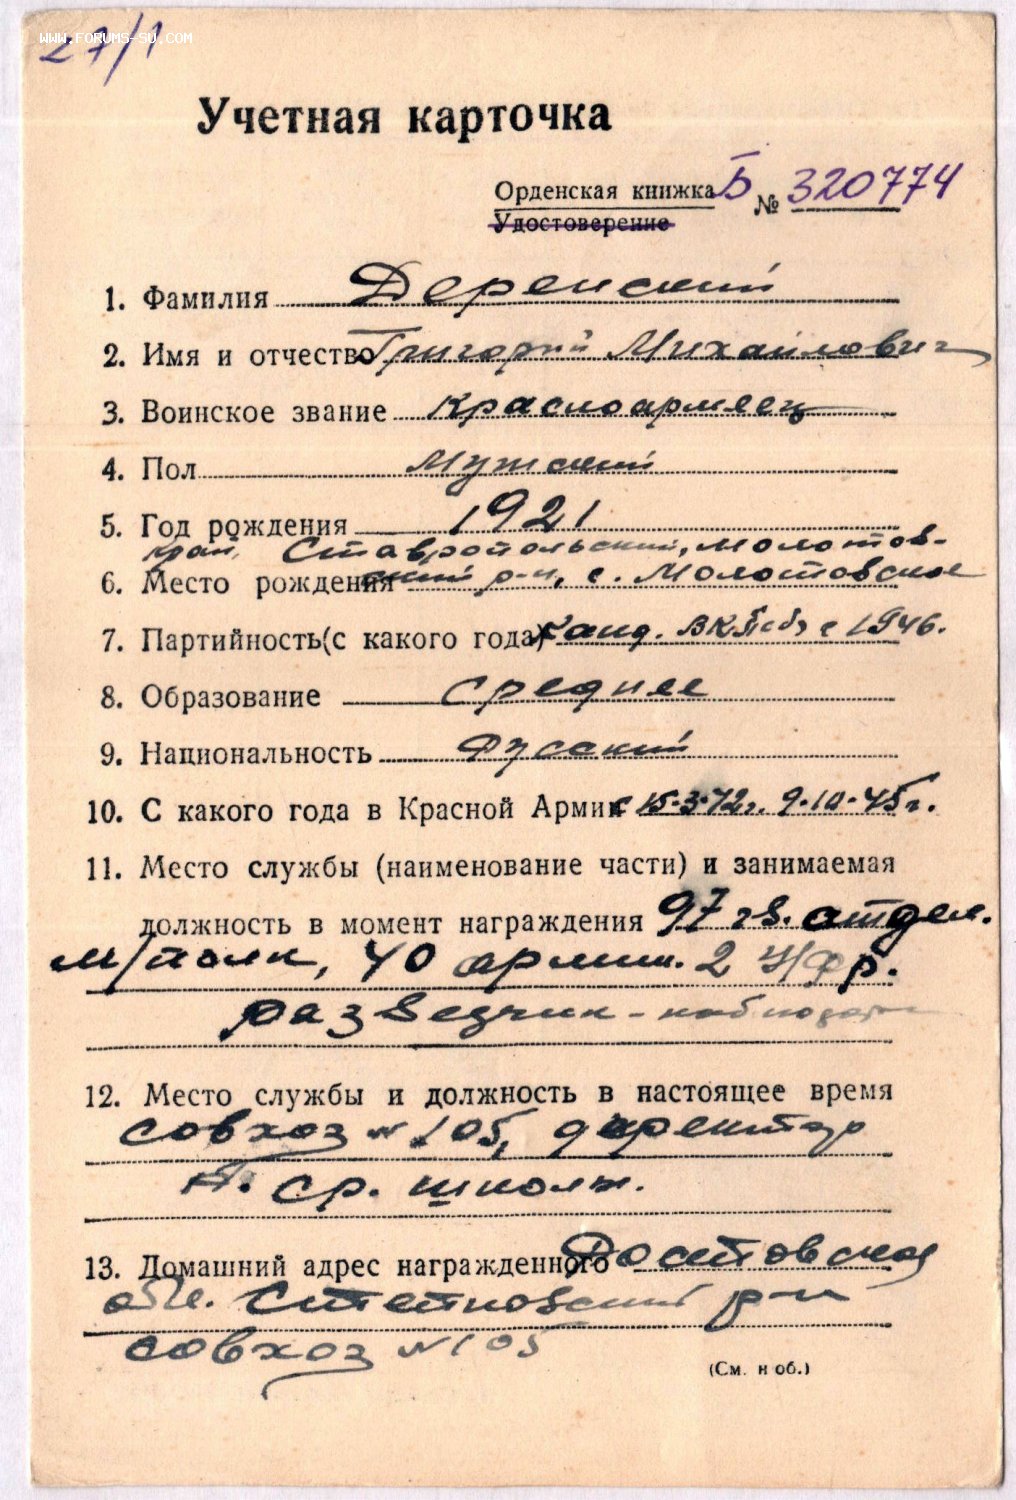 www.forums-su.com
27/1
Учетная карточка
Орденская книжка Б № 320774
Удостоверение
1. Фамилия Деренский
2. Имя и отчество Григорий Михайлович
3. Воинское звание Красноармеец
4. Пол Мужской
5. Год рождения 1921
край, Ставропольский, Молотов-
6. Место рождения ский р-н, с. Молотовское
7. Партийность (с какого года) Канд. ВКП(б) с 1946.
8. Образование Среднее
9. Национальность Русский
10. С какого года в Красной Армии с 15-3-42г. 9-10-45г.
11. Место службы (наименование части) и занимаемая
должность в момент награждения 97 гв. отдел.
м/полк, 40 армии. 2 У/Фр.
разведчик-наблюдатель
12. Место службы и должность в настоящее время
совхоз № 105, директор
ср. школы.
13. Домашний адрес награжденного Ростовская
обл. Степновский р-н
совхоз № 105
(См. н об.)